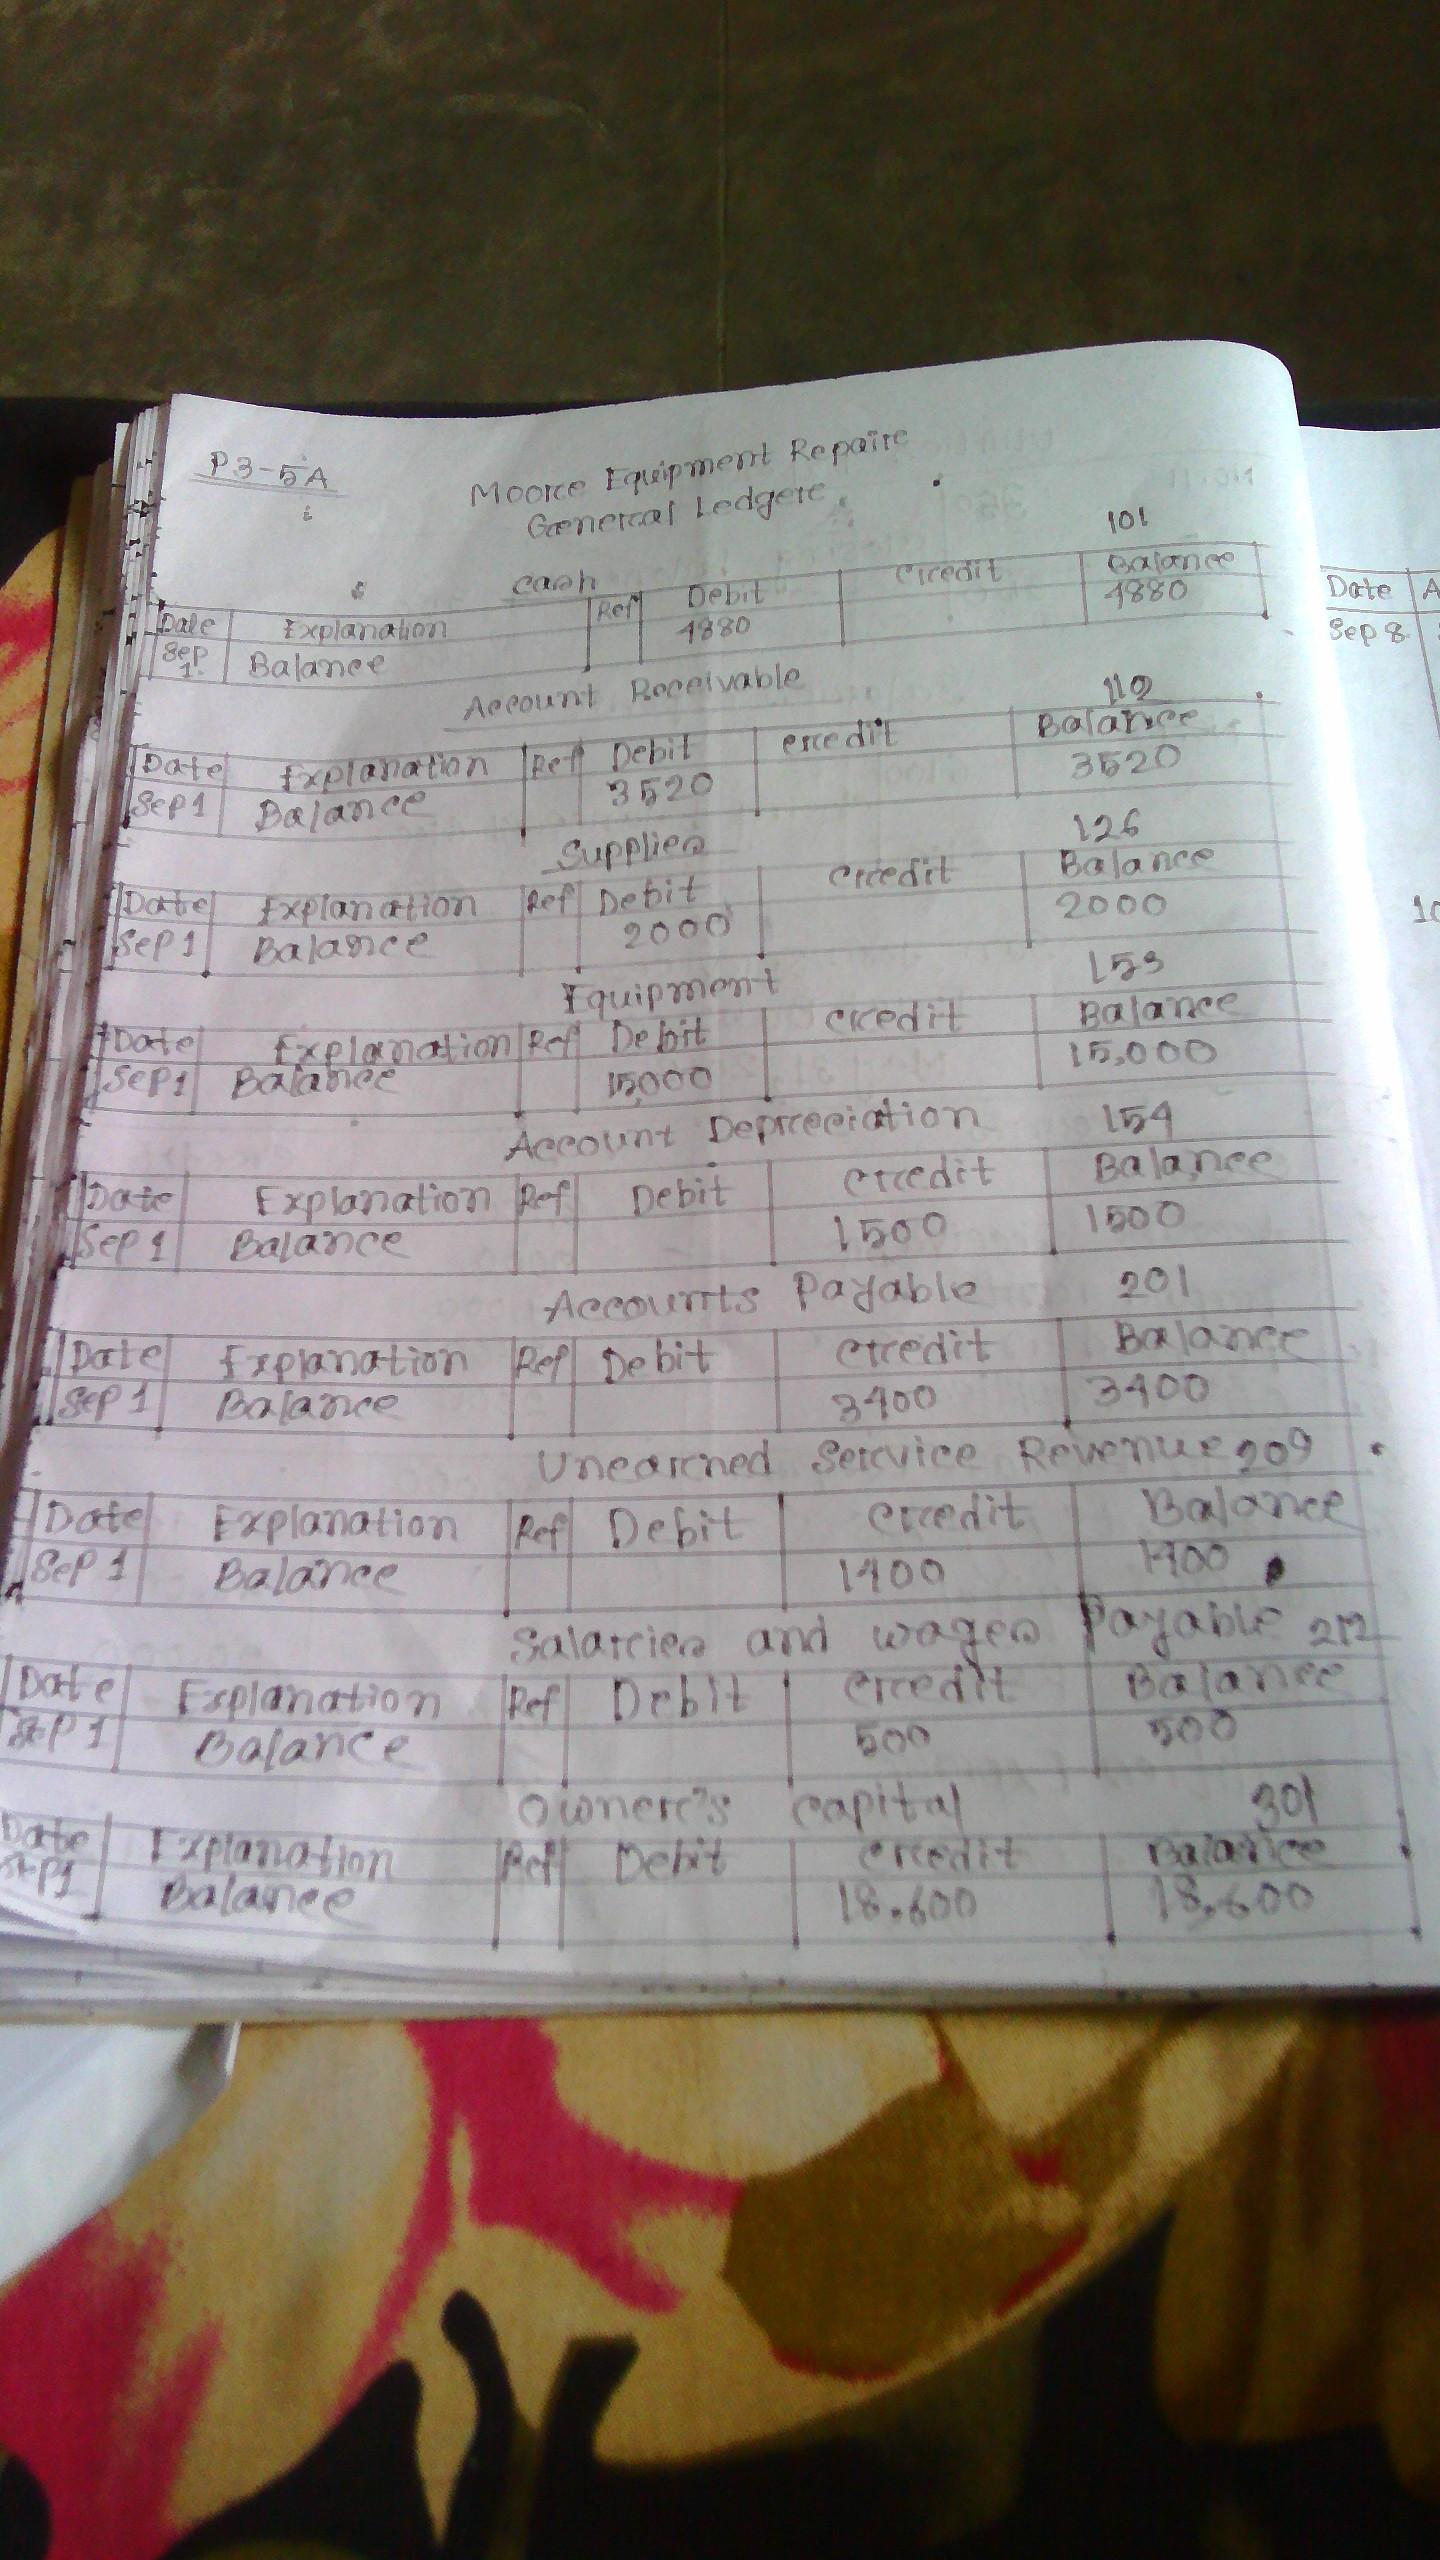 P3-5A
Moore Equipment Repair
General Ledger
Cash 101
Date Explanation Ref Debit Credit Balance
Sep 1. Balance 4880 4880
Account Receivable 112
Date Explanation Ref Debit Credit Balance
Sep 1 Balance 3520 3520
Supplies 126
Date Explanation Ref Debit Credit Balance
Sep 1 Balance 2000 2000
Equipment 153
Date Explanation Ref Debit Credit Balance
Sep 1 Balance 15,000 15,000
Account Depreciation 154
Date Explanation Ref Debit Credit Balance
Sep 1 Balance 1500 1500
Accounts Payable 201
Date Explanation Ref Debit Credit Balance
Sep 1 Balance 3400 3400
Unearned Service Revenue 209
Date Explanation Ref Debit Credit Balance
Sep 1 Balance 1400 1400
Salaries and wages Payable 212
Date Explanation Ref Debit Credit Balance
Sep 1 Balance 500 500
Owner's Capital 301
Date Explanation Ref Debit Credit Balance
Sep 1 Balance 18,600 18,600
Date A
Sep 8
10